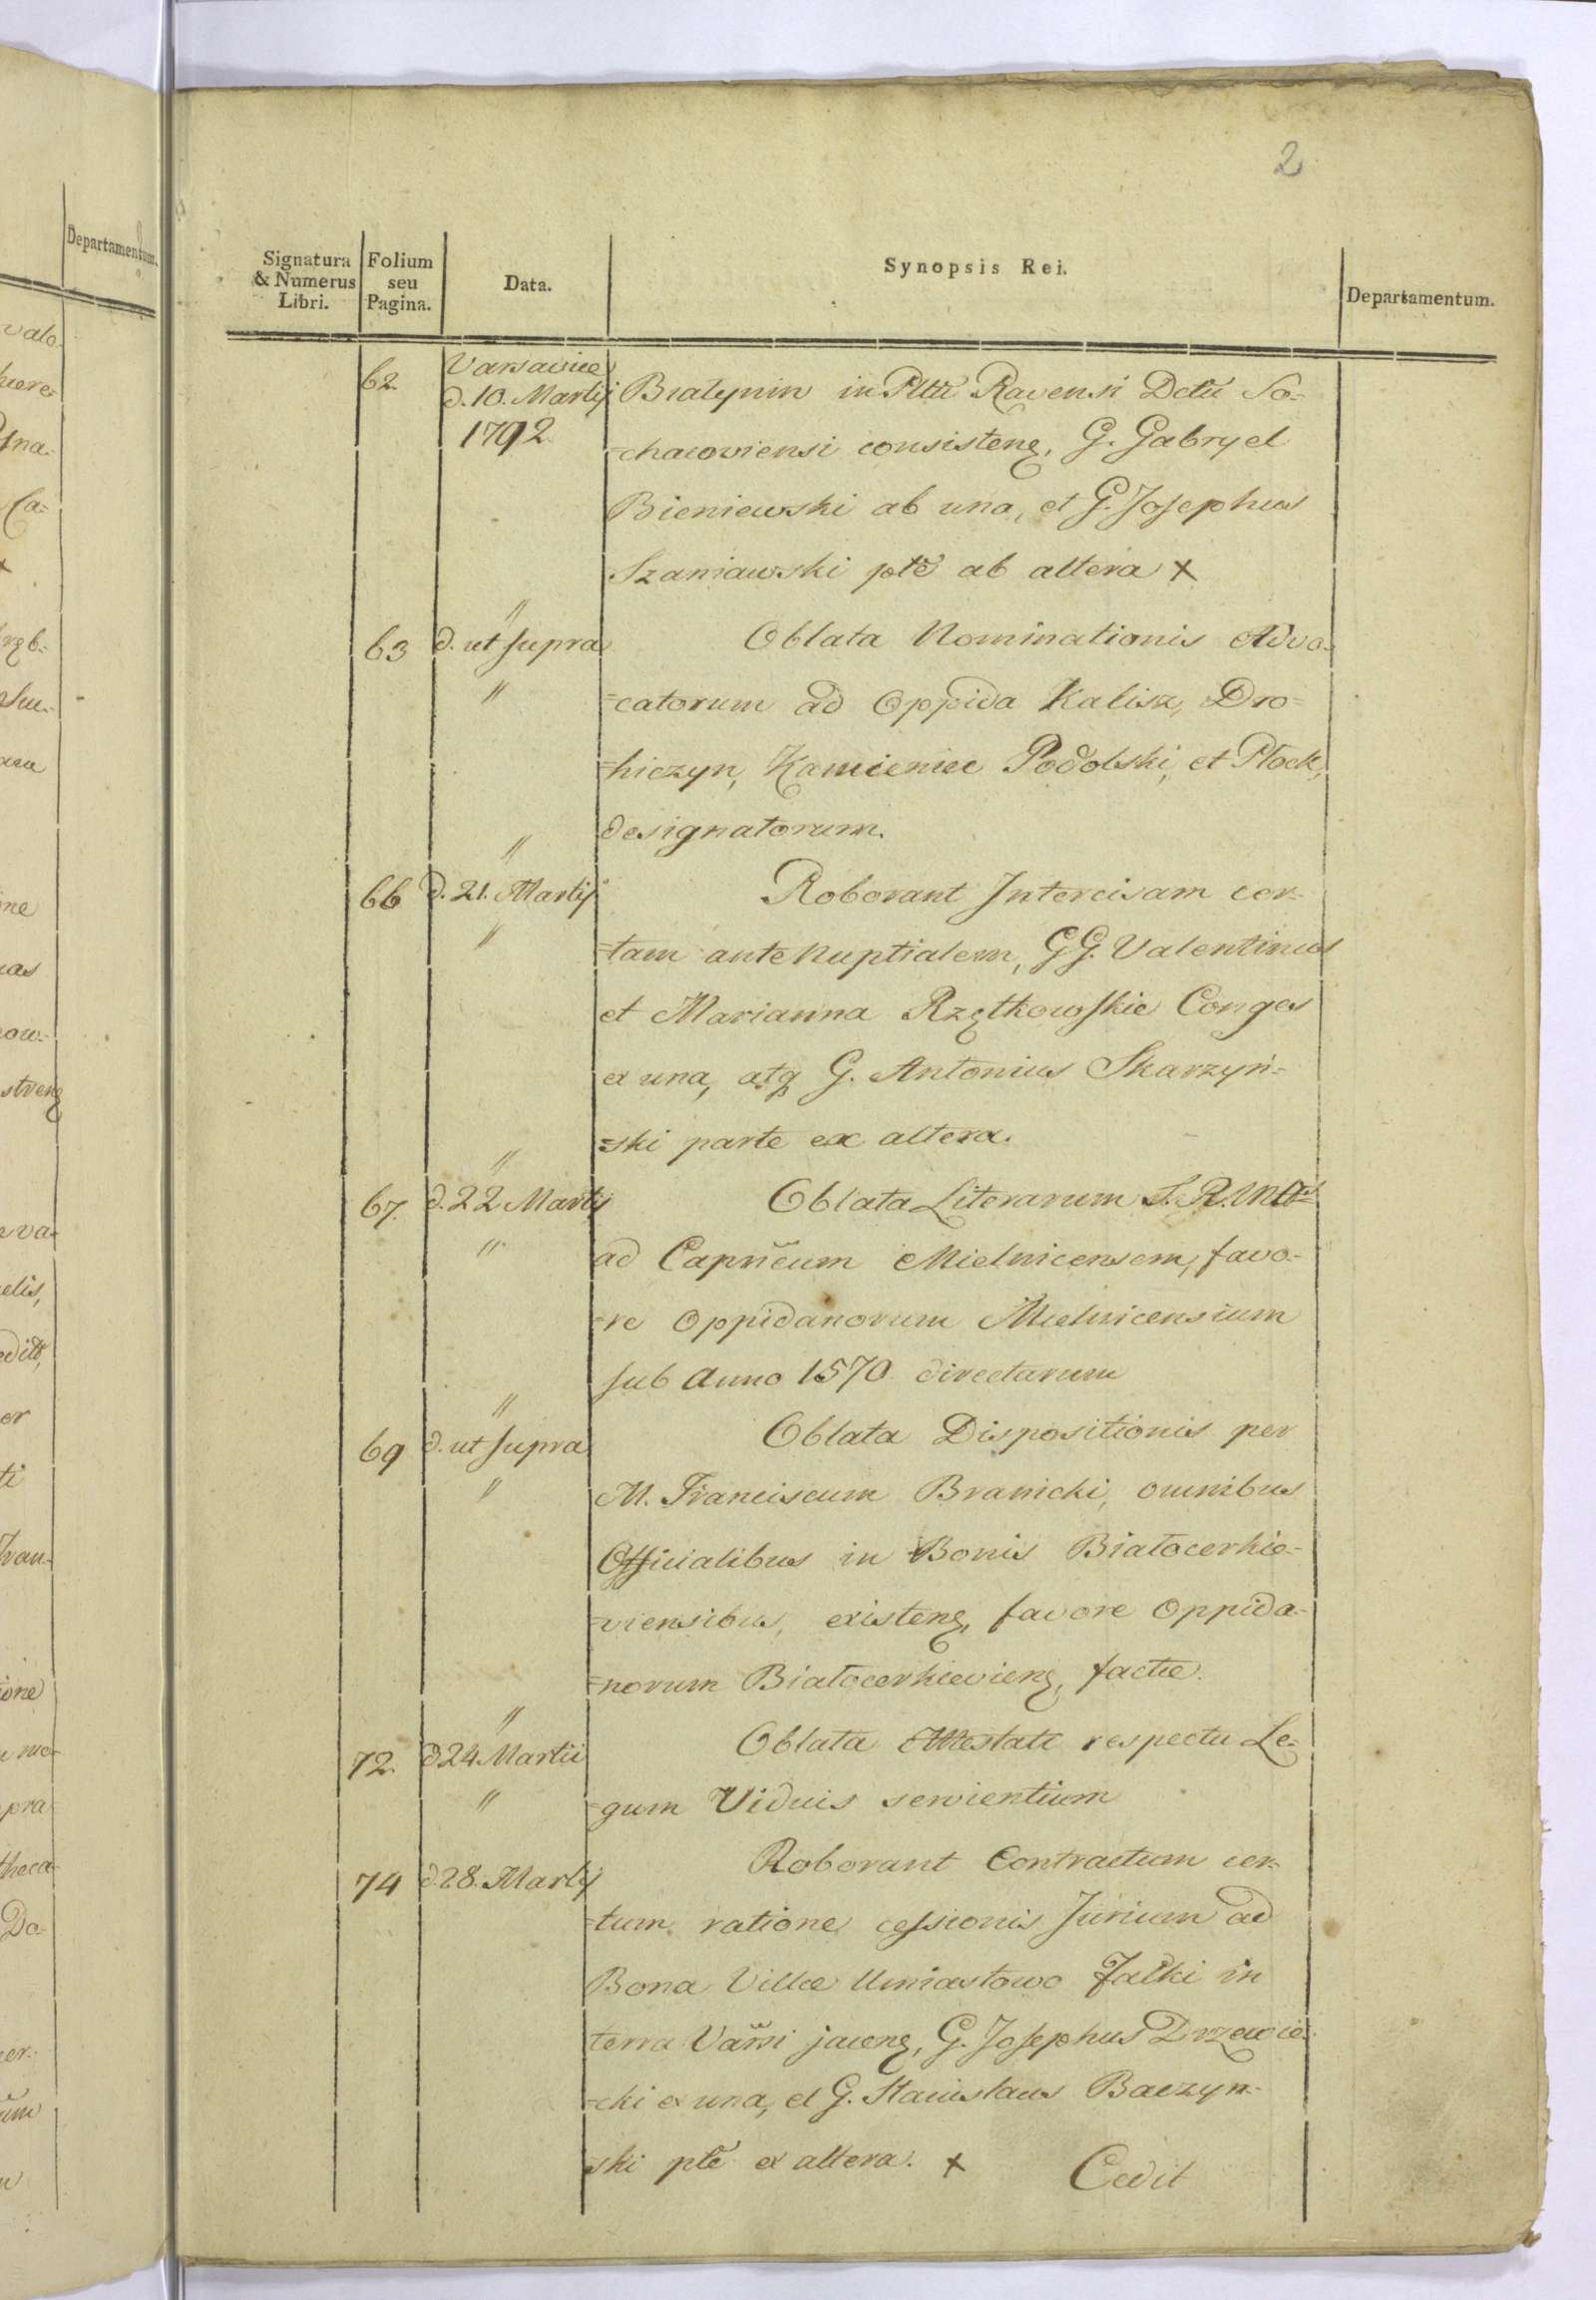 2
Signatura & Numerus Libri.
Folium seu Pagina.
Data.
Synopsis Rei.
Departamentum.
62. Varsaviae
d. 10. Martij Bratynin in Pltu Ravensi Dctu So=
1792 =chacoviensi consistenę, G. Gabryel
Bieniewski ab una, et G. Josephus
Szaniawski pte ab altera x
"
63 d. ut supra Oblata Nominationis Advo=
" =catorum ad Oppida Kalisz, Dro=
=hiczyn, Kamieniec Podolski, et Płock,
designatorum.
"
66 d. 21. Martij Roborant Intercisam cer=
" =tam antenuptialem, GG. Valentinus
et Marianna Rzętkowskie Conges
ex una, atq G. Antonius Skarzyń=
=ski parte ex altera.
"
67. d. 22 Martij Oblata Literarum S. R. Mttis
" ad Capneum Mielnicensem, favo=
=re Oppidanorum Mielnicensium
sub Anno 1570 directarum
"
69 d. ut supra Oblata Dispositionis per
" M. Franciscum Branicki, omnibus
Officialibus in Bonis Białocerkie=
=viensibus, existenę, favore Oppida=
=norum Białocerkievienę, factae.
"
72. d 24 Martii Oblata Attestati respectu Le=
" =gum Viduis servientium
74 d. 28. Martij Roborant Contractum cer=
=tum ratione cessionis Jurium ad
Bona Villae Umiastowo Fałki in
terra Varsi jacenę, G. Josephus Drzewie=
=cki ex una, et G. Stanislaus Baczyn=
ski pte ex altera. x Cedit